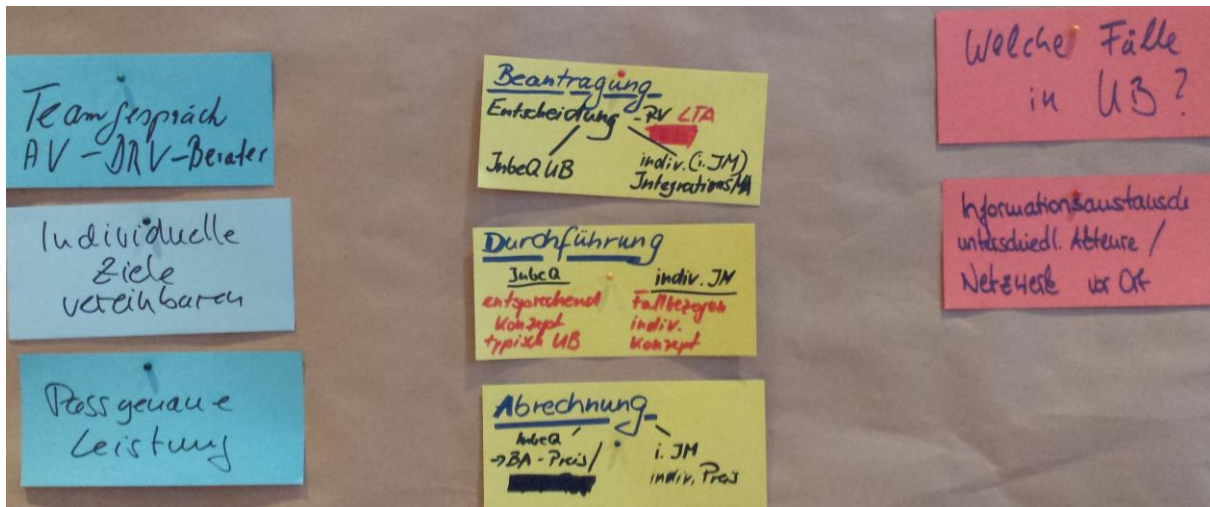 Teamgespräch
AV-DRV-Berater
Individuelle
Ziele
vereinbaren
Passgenaue
Leistung
Beantragung
Entscheidung - RV LTA
InbeQ UB
indiv. (i. IM)
IntegrationsMA
Durchführung
InbeQ
entsprechend
Konzept
typisch UB
indiv. IM
Fallbezogen
indiv.
Konzept
Abrechnung
InbeQ
→ BA-Preis/
i. IM
indiv. Preis
Welche Fälle
in UB?
Informationsaustausch
unterschiedl. Akteure /
Netzwerke vor Ort